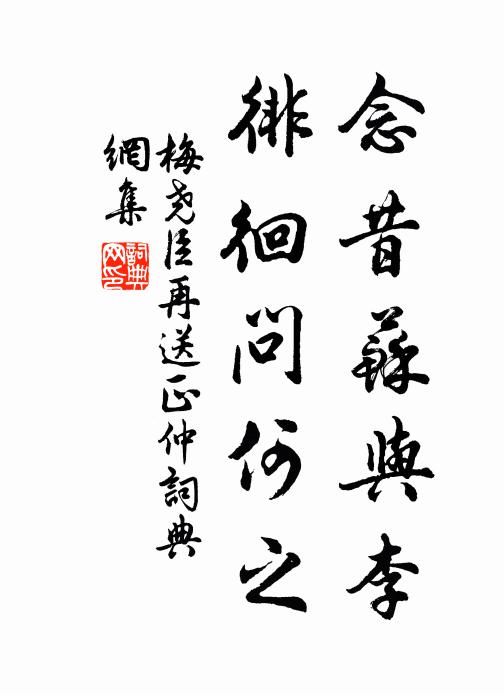 念昔蘇與李
徘徊問何之
梅尧臣再送正仲詞典
網集
詞典
网印